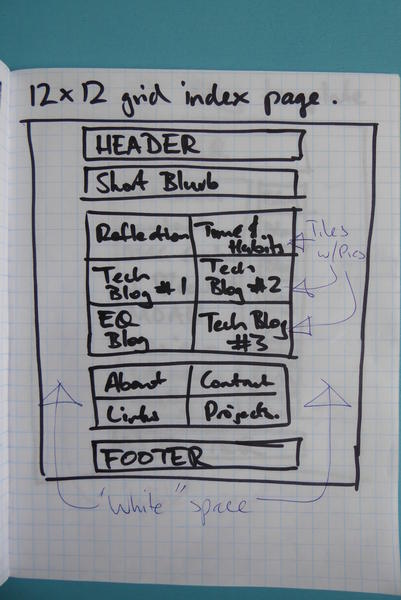 12x12 grid index page.
HEADER
Short Blurb
Reflection
Time & Habits
Tiles w/Pics
Tech Blog #1
Tech Blog #2
EQ Blog
Tech Blog #3
About
Contact
Links
Projects.
FOOTER
"White" space